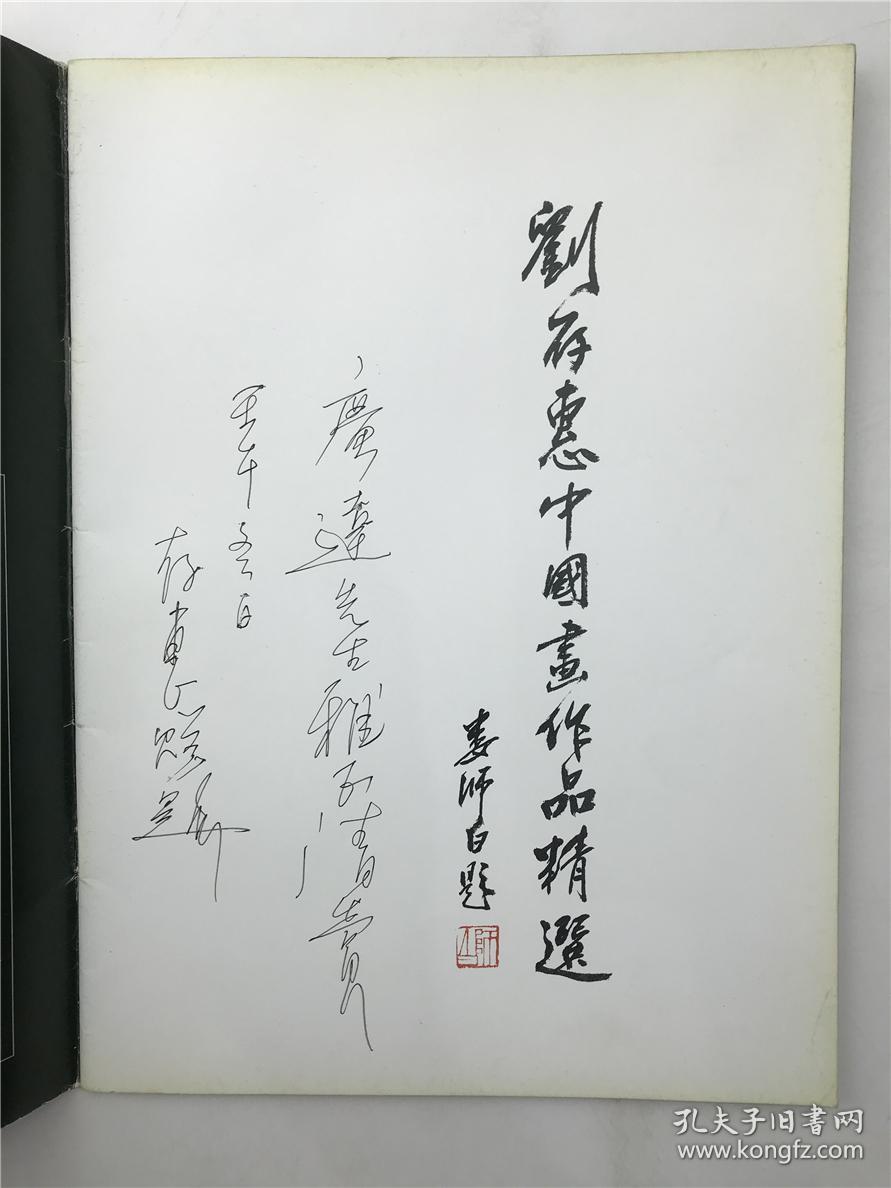 劉存惠中國畫作品精選
婁師白題
師白
廣達先生雅正清賞
壬午
存惠題
孔夫子旧書网
www.kongfz.com